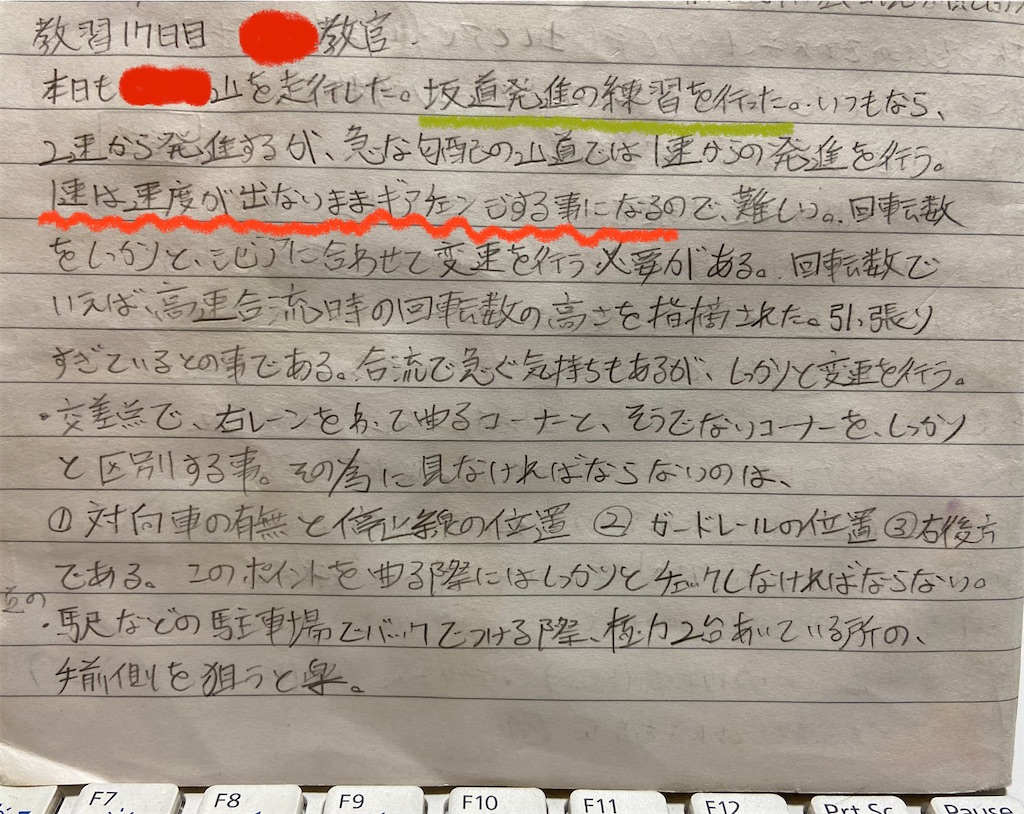 教習17日目 教官.
本日も 山を走行した。坂道発進の練習を行った。いつもなら、
2速から発進するが、急な勾配の山道では1速からの発進を行う。
1速は速度が出ないままギアチェンジする事になるので、難しい。回転数
をしっかりと、シビアに合わせて変速を行う必要がある。回転数で
いえば、高速合流時の回転数の高さを指摘された。引っ張り
すぎているとの事である。合流で急ぐ気持ちもあるが、しっかりと変速を行う。
・交差点で、右レーンをわって曲るコーナーと、そうでないコーナーを、しっかり
と区別する事。その為に見なければならないのは、
① 対向車の有無と停止線の位置 ② ガードレールの位置 ③右後方
である。このポイントを曲る際にはしっかりとチェックしなければならない。
道の
・駅などの駐車場でバックでつける際、極力2台あいている所の、
手前側を狙うと楽。
F7 F8 F9 F10 F11 F12 Prt Sc Pause